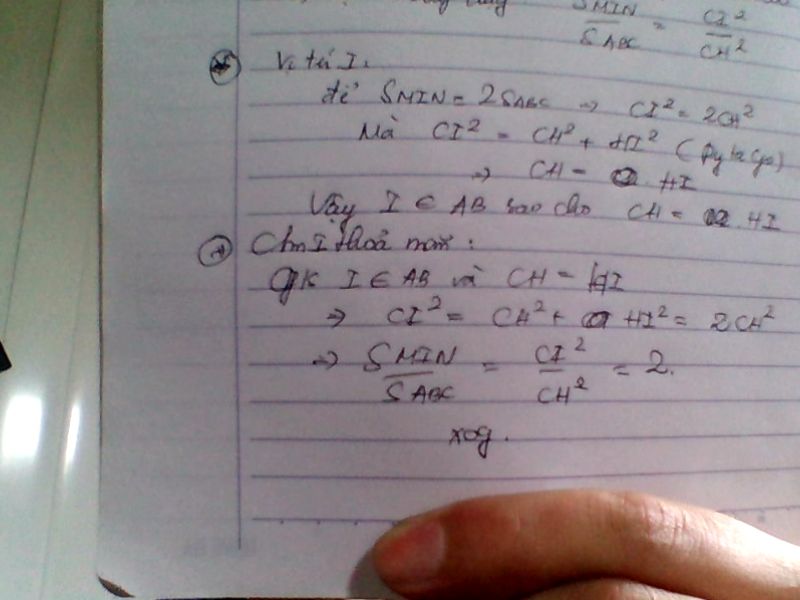 SMIN/SABC = CI²/CH²
Vị trí I.
để SMIN = 2SABC → CI² = 2CH²
Mà CI² = CH² + HI² (Py ta go)
→ CH = HI
Vậy I ∈ AB sao cho CH = HI
Cm I thoả mãn:
Gk I ∈ AB và CH = HI
→ CI² = CH² + HI² = 2CH²
→ SMIN/SABC = CI²/CH² = 2.
xog.